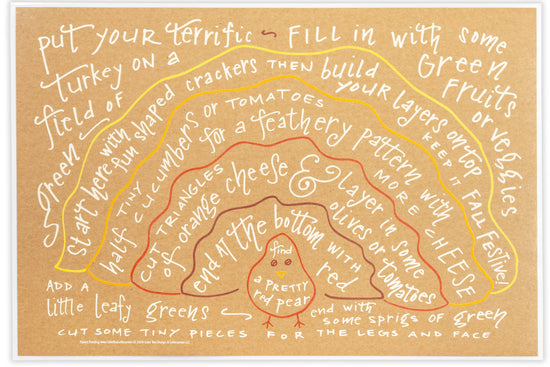 put YOUR terrific
turkey ON a
field OF
green
FILL in with some
Green
fruits
or veggies
Start here with fun shaped crackers THEN build YOUR layers on top KEEP IT FALL FESTIVE
half TINY cucumbers or TOMATOES for a feathery pattern with MORE CHEESE
CUT TRIANGLES of orange cheese & layer in some olives or tomatoes
end AT the bottom WITH red
find
a PRETTY
red pear
ADD A
little leafy greens
end with
some sprigs of green
CUT SOME TINY PIECES FOR THE LEGS AND FACE